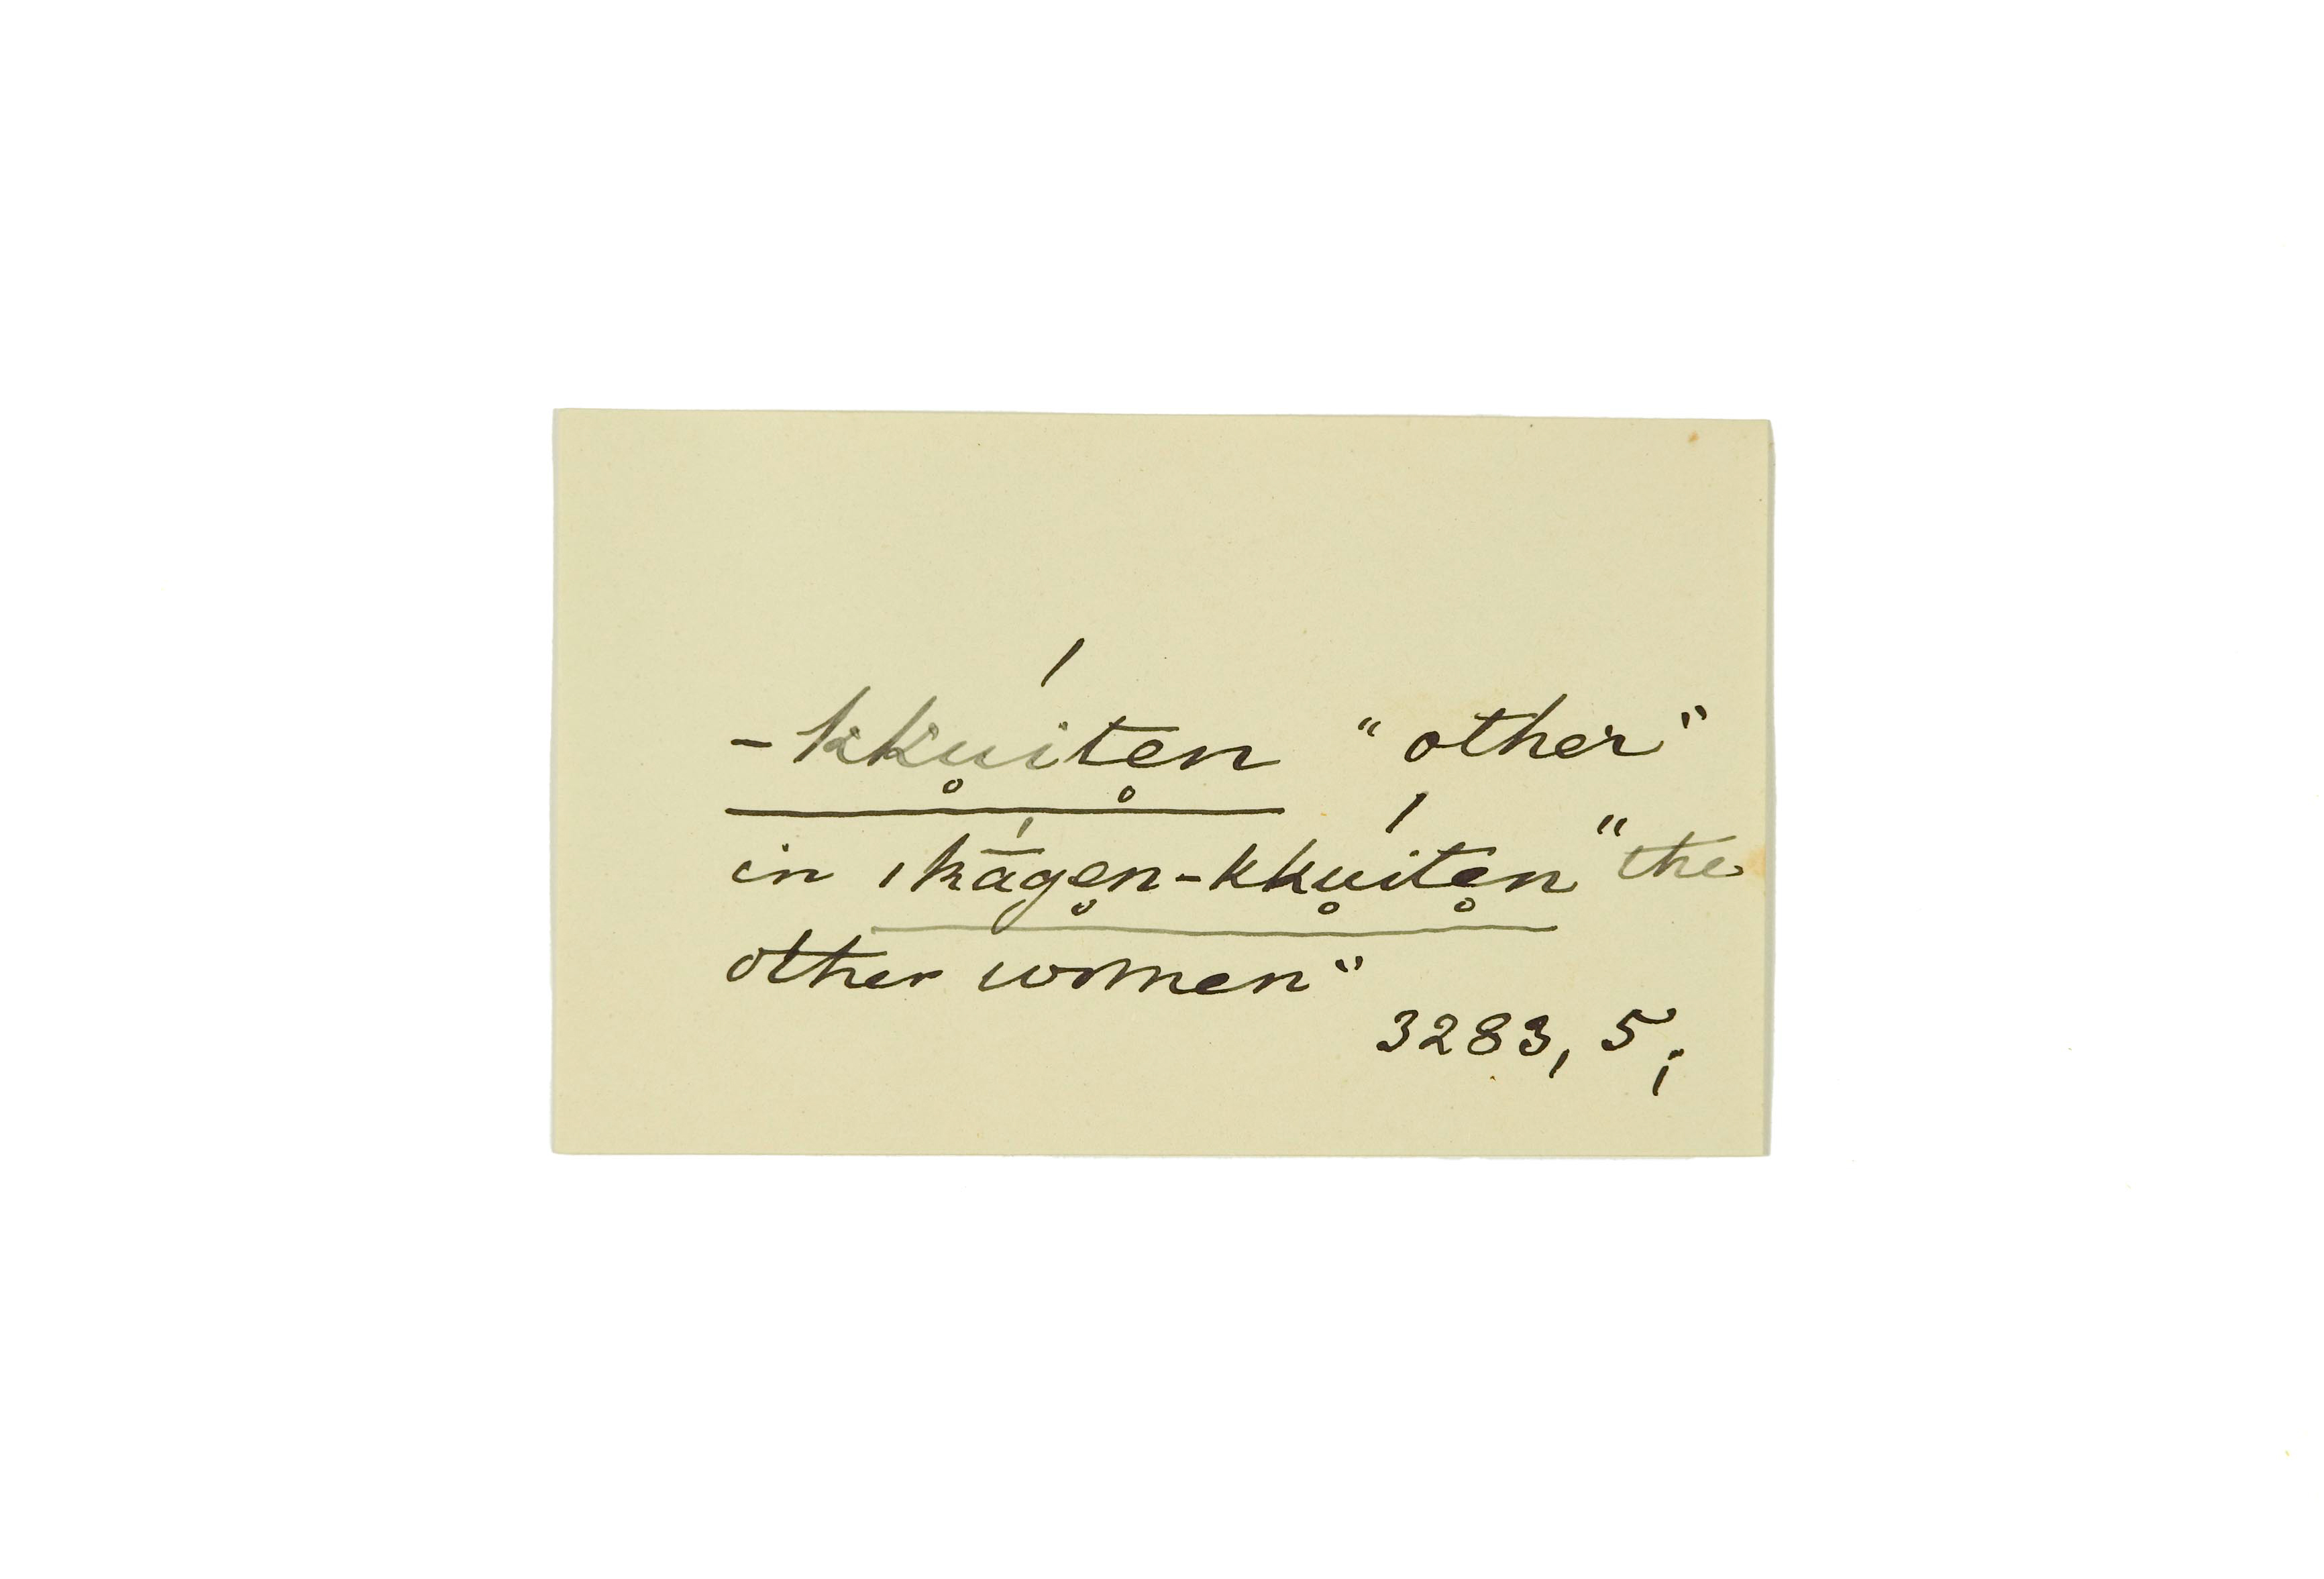 -kku̥íte̥n "other"
in ˌkā́ge̥n-kku̥íte̥n "the
other women"
3283, 5;